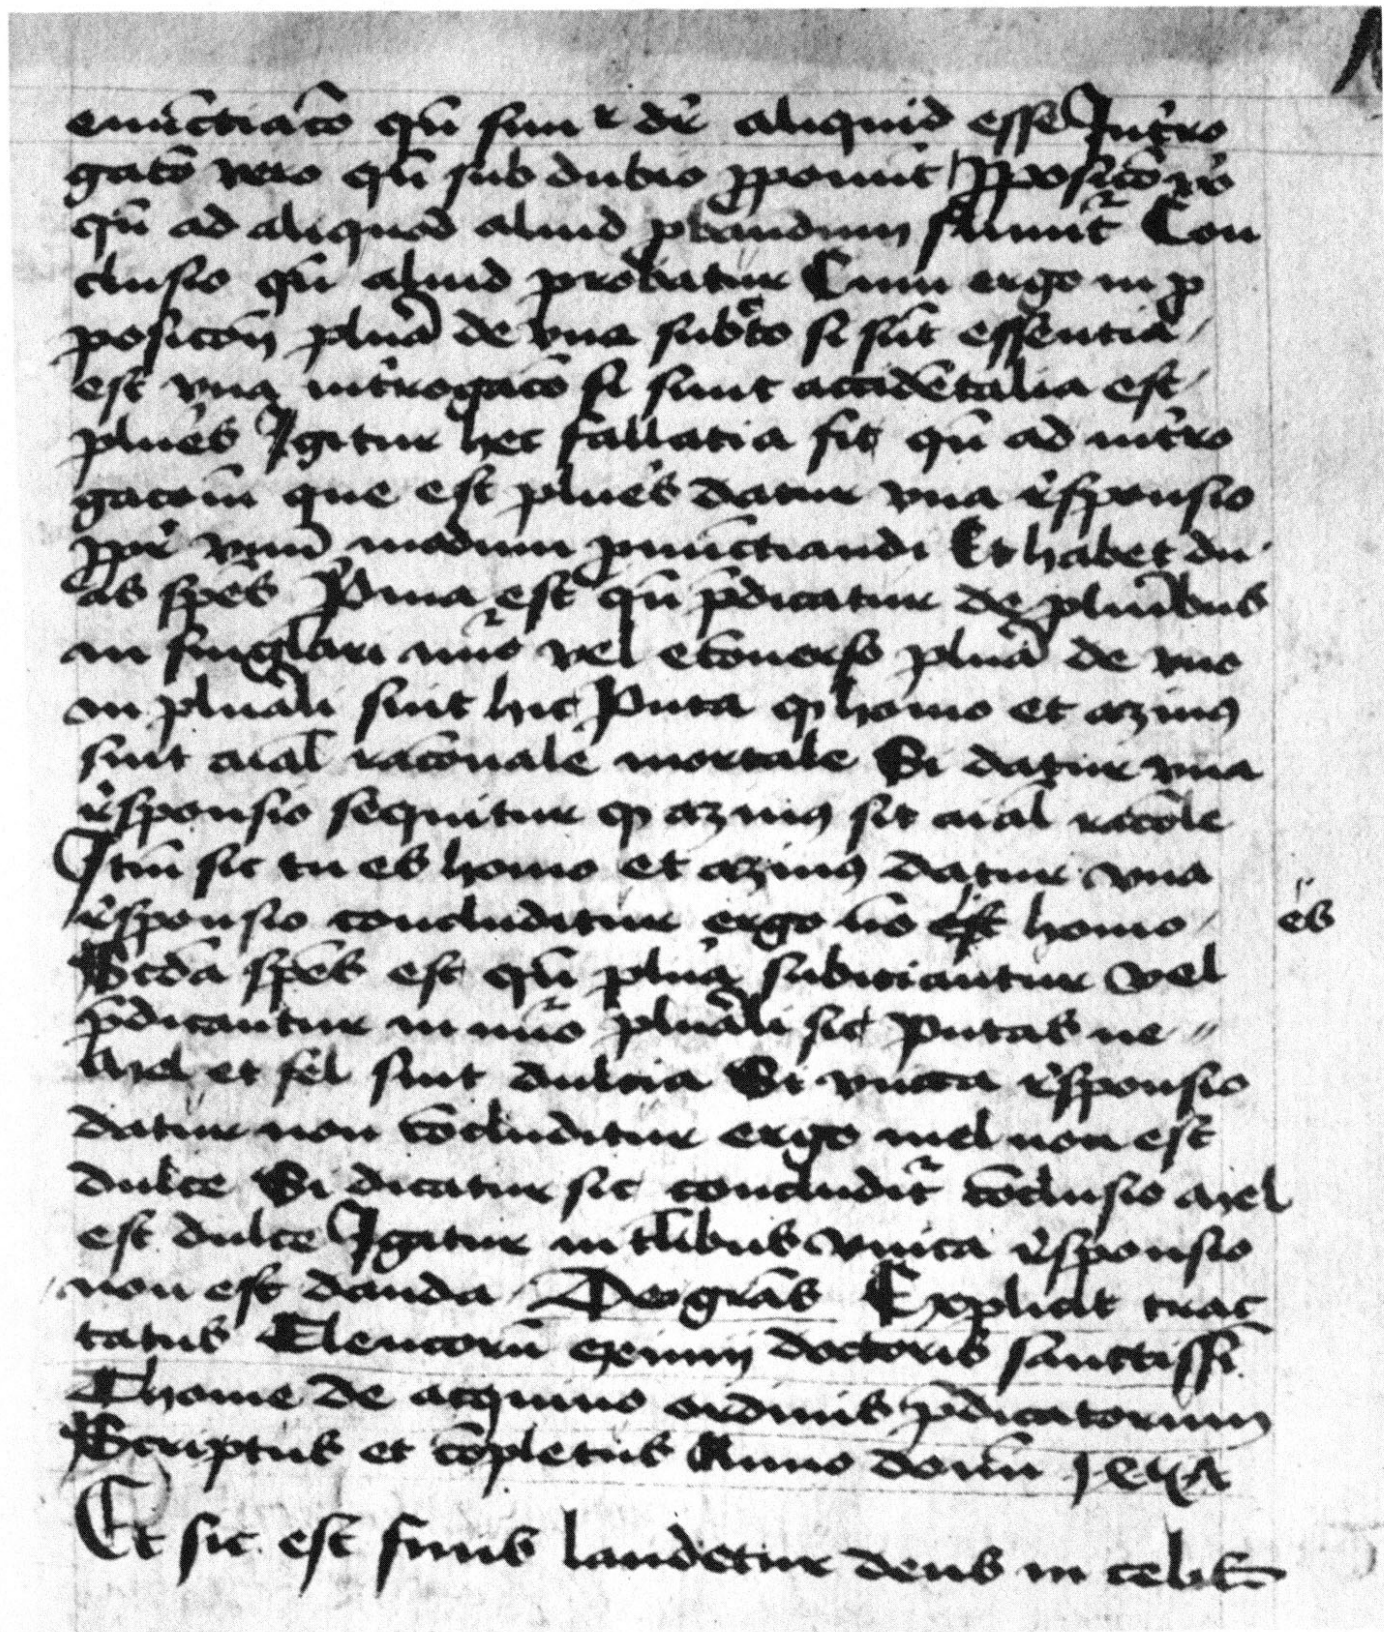 enūctiacō qn̄ simʳ dr̄ aliquid esse Int̓ro
gatō vero qn̄ sub dubio ꝓponit̄ ꝓposicō v̓o
qn̄ ad aliquod aliud ꝓbandum sumit̄ Con
clusio qn̄ aliud probatur Cum ergo in ꝓ
posicōn̄ plur̄a de vna subc̄to si sūt essentia
est vna int̓rogacō si sunt accidētalia est
plures Igitur hec fallatia fit qn̄ ad int̓ro
gacōm̄ que est plures datur vna r̓sponsio
ꝓpt̓ vnū modum ꝓnūctiandi Et habet du
as sp̄es Prima est qn̄ p̄dicatur de plurībus
in singl̄ari nūo vel ecōuerso plura de vno
in plurali sint hic Puta ꝙ homo et azinꝰ
sint aīal racōnale mortale Si datur vna
r̓sponsio sequitur ꝙ azinꝰ sit aīal racōle
Itm̄ sic tu es homo et azinꝰ datur vna
r̓sponsio concluditur ergo nō est homo es
Scd̄a sp̄es est qn̄ plura subiciantur vel
p̄dicantur in nūo plurali sic Putas ne
Mel et fel sint dulcia Si vnica r̓sponsio
datur non cōcluditur ergo mel non est
dulce Si dicatur sic concludit̄ cōclusio Mel
est dulce Igitur in tl̄ibus vnica r̓sponsio
non est danda Deo grās Explicit trac
tatus Elencorū eximij doctoris sanctissī
Thome de acquino ordinis p̄dicatorum
Scriptus et cōpletus Anno domī
Et sic est finis laudetur deus in celis